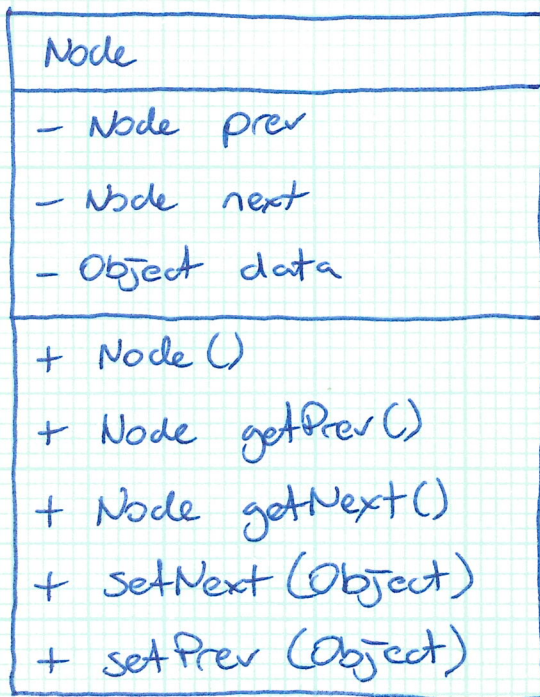 Node
- Node prev
- Node next
- Object data
+ Node()
+ Node getPrev()
+ Node getNext()
+ setNext (Object)
+ setPrev (Object)